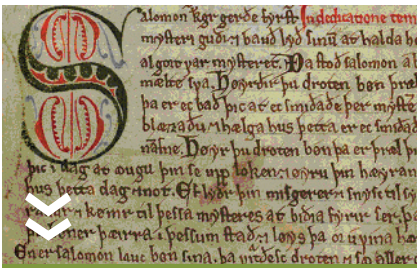 Salomon kgr gerðe fyrst In dedicatione tem
mysteri guði ⁊ bauð lyð sinū at halda
algort var mysteret. Þa stoð salomon a
mælte sva. Hoyrðu þu droten bøn
þa er ec bað þic at ec smiðaðe þer myste
blæzaðu ⁊ hælga hus þetta er ec smiðað
nafne. Hoyr þu droten bøn þa er þræl þin
þic i dag at ougu þin se upp loken ⁊ oyru þin hæyran
hus þetta dag ⁊ not. Ef lyðr þin misgerer ⁊ snyst til
⁊ kemr til þessa mysteres at biðia fyrir ser. þa
þæirra i þessum stað ⁊ løys þa or
En er salomon lauc bøn sina. þa vitdesc droten